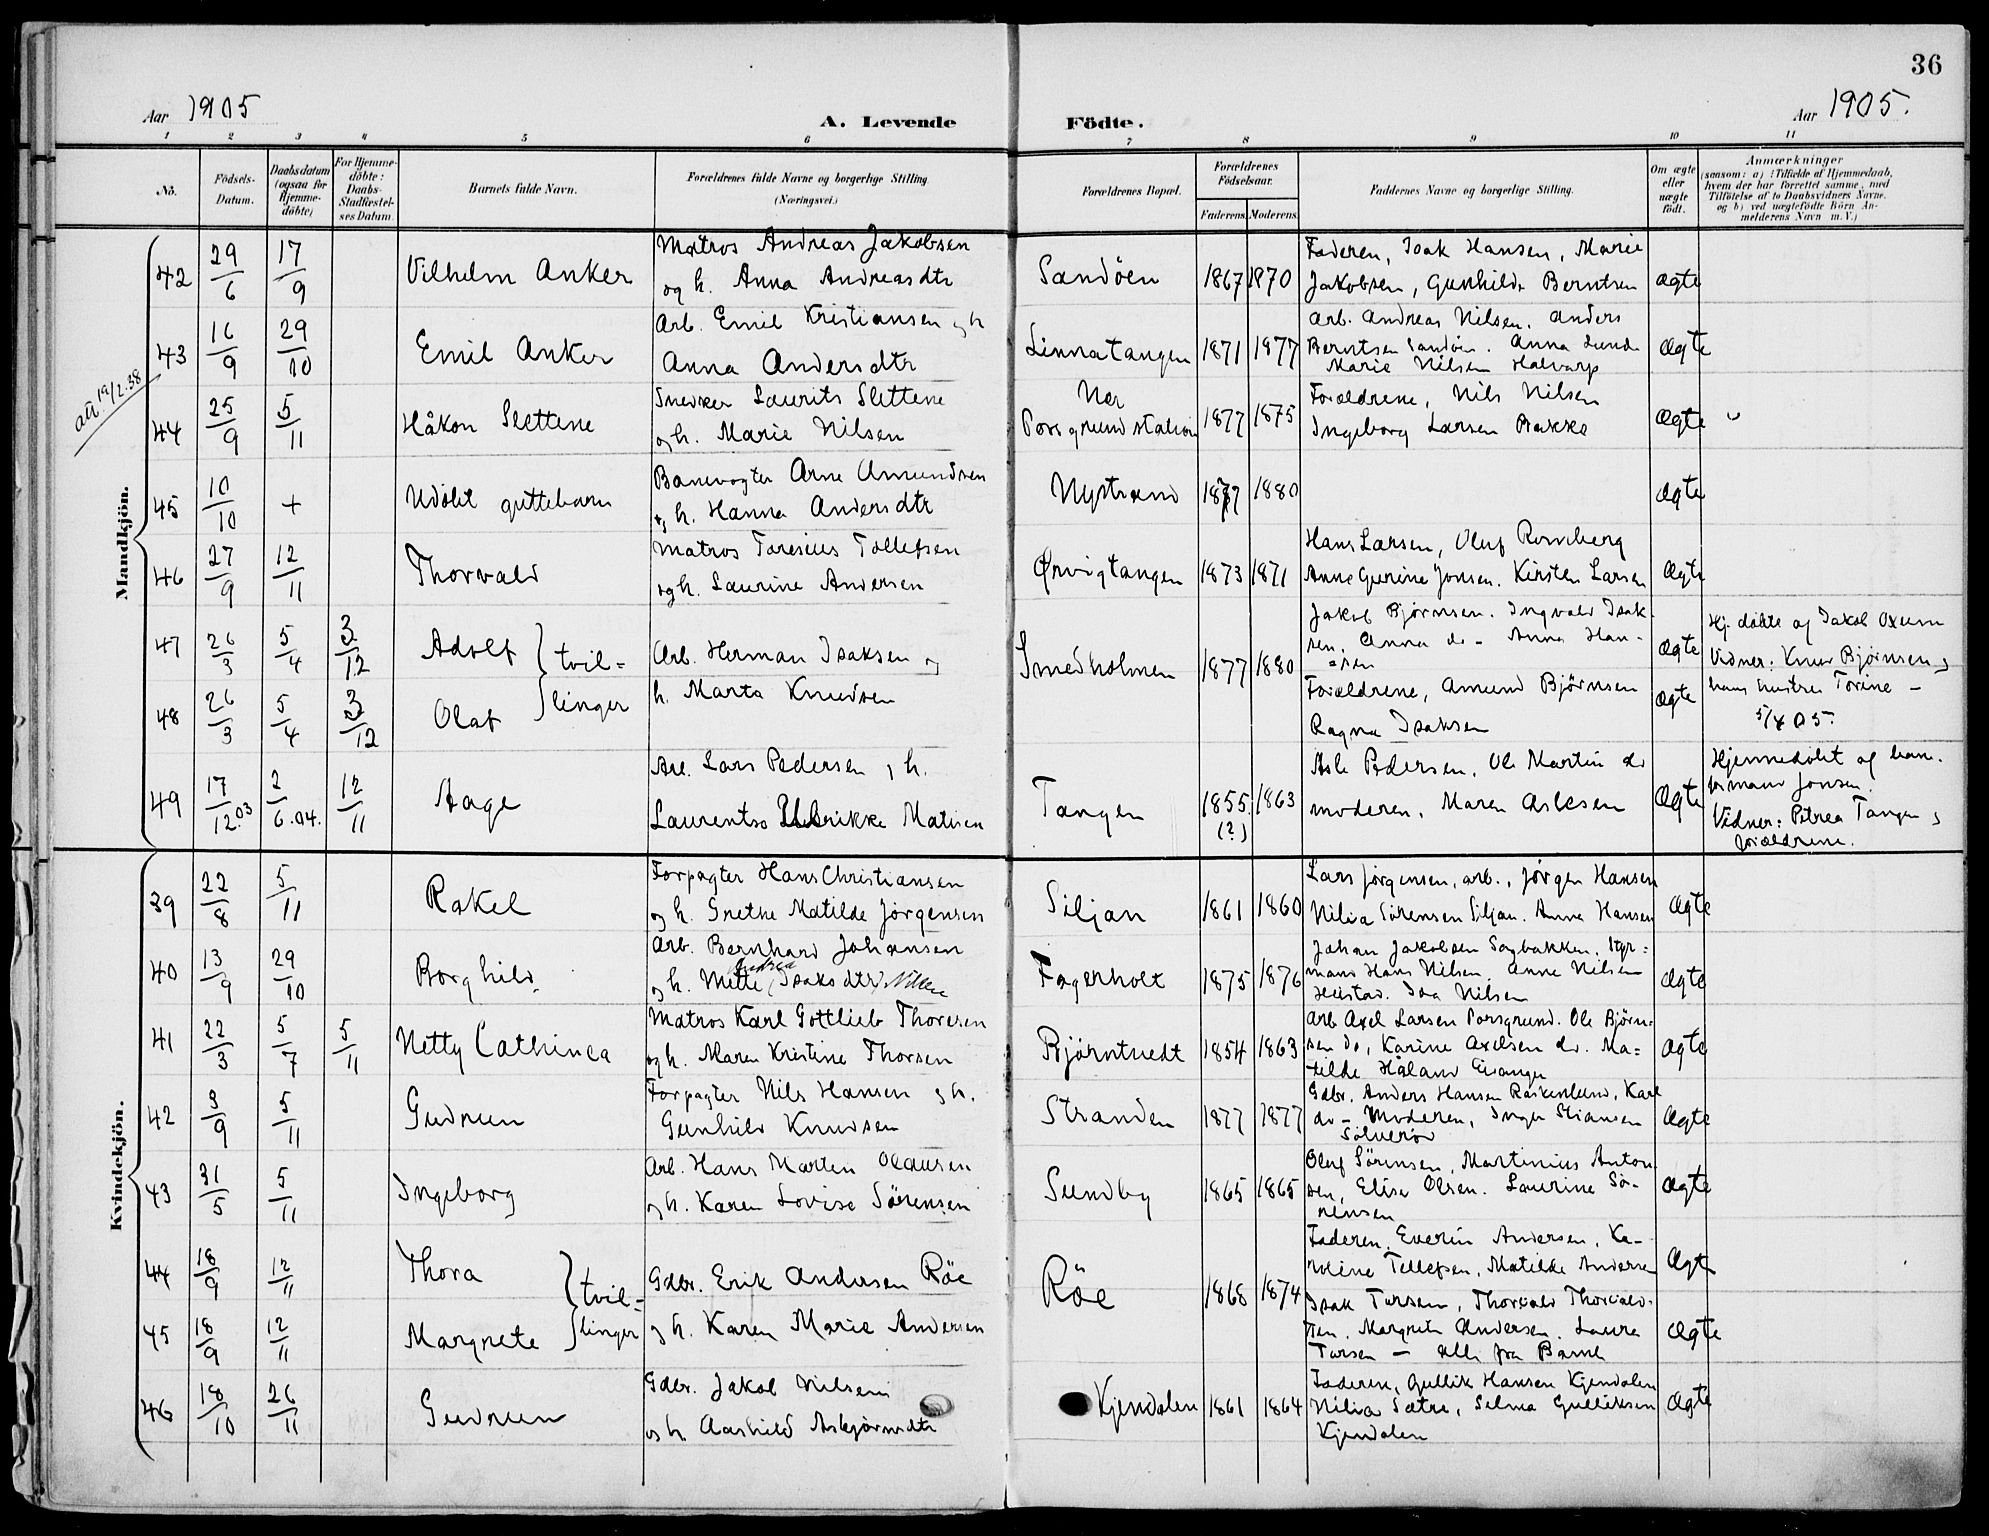 36
Aar 1905
A. Levende Födte.
Aar 1905.
1 2 3 4 5 6 7 8 9 10 11
No.
Födsels-
Datum.
Daabsdatum
(ogsaa for
Hjemme-
döbte)
For Hjemme-
döbte:
Daabs-
Stadfæstel-
ses Datum.
Barnets fulde Navn.
Forældrenes fulde Navne og borgerlige Stilling
(Næringsvei.)
Forældrenes Bopæl.
Forældrenes
Födselsaar.
Faderens. Moderens.
Faddernes Navne og borgerlige Stilling.
Om ægte
eller
uægte
födt.
Anmærkninger
(saasom: a) i Tilfælde af Hjemmedaab,
hvem der har forrettet samme, med
Tilföielse af to Daabsvidners Navne,
og b) ved uægtefödte Börn An-
melderens Navn m. V.)
Mandkjön.
42 29/6 17/9 Vilhelm Anker
Matros Andreas Jakobsen
og h. Anna Andreasdtr
Sandöen 1867 1870
Faderen, Isak Hansen, Marie
Jakobsen, Gunhilda Berntsen
ægte
43 16/9 29/10 Emil Anker
Arb. Emil Kristiansen og h
Anna Andersdtr
Linnatangen 1871 1877
Arb. Andreas Nilsen. Anders
Berntsen Sandöen. Anna Lunde
Marie Nilsen Halvarp
ægte
att 19/2.38
44 25/9 5/11 Håkon Slettene
Snedker Laurits Slettene
og h. Marie Nilsen
Nær
Porsgrund station 1877 1875
Forældrene, Nils Nilsen
Ingeborg Larsen Bakke
ægte "
45 10/10 + Udöbt guttebarn
Banevogter Arne Amundsen
og h. Hanna Andersdtr
Nystrand 1877 1880
ægte
46 27/9 12/11 Thorvald
Matros Taresius Tollefsen
og h. Laurine Andersen
Ørvigtangen 1873 1871
Hans Larsen, Oluf Romberg
Anne Gurine Jonsen. Kirsten Larsen
ægte
47 26/3 5/4 3/12 Adolf } tvil=
48 26/3 5/4 3/12 Olaf } linger
Arb. Herman Isaksen og
h. Marta Knudsen
Smedholmen 1877 1880
Jakob Bjørnsen. Ingvald Isak-
sen, Anna do - Anna Han-
sen
ægte
Forældrene, Amund Bjørnsen
Ragna Isaksen
ægte
Hj. döbte af Jakob Oxum
Vidner: Knud Bjørnsen og
hans hustru Torine -
5/4 05.
49 17/12.03 2/6.04. 12/11 Aage
Arb. Lars Pedersen og h.
Laurentse Ulrikke Matisen
Tangen 1855 (?) 1863
Asle Pedersen, Ole Martin do
moderen, Maren Aslesen
ægte
Hjemmedöbt af han.
Jonsen.
Vidner: Petrea Tangen og
forældrene.
Kvindekjön.
39 22/8 5/11 Rakel
Forpagter Hans Christiansen
og h. Grethe Matilde Jörgensen
Siljan 1861 1860
Lars Jörgensen, arb., Jörgen Hansen
Nilia Sörensen Siljan. Anna Hansen
ægte
40 13/9 29/10 Borghild.
Arb. Bernhard Johansen
Andrea
og h. Mette (Isaksdtr) Nilsen
Fagerholt 1875 1876
Johan Jakobsen Sagbakken, Styr=
mand Hans Nilsen. Anne Nilsen
Heistad. Ida Nilsen
ægte
41 22/3 5/7 5/11 Netty Cathinca
Matros Karl Gottlieb Thoresen
og h. Maren Kristine Thorsen
Bjørntvedt 1854 1863
Arb Axel Larsen Porsgrund. Ole Björn=
sen do, Karine Axelsen do. Ma=
tilde Håland Eianger
ægte
42 9/9 5/11 Gudrun
Forpagter Nils Hansen og h.
Gunhild Knudsen
Stranden 1877 1877
Gdbr. Anders Hansen Raskenlund, Karl
do - Moderen, Inger Stiansen
ægte
43 31/5 5/11 Ingeborg
Arb. Hans Marten Olausen
og h. Karen Lovise Sörensen
Sundby 1865 1865
Oluf Sörensen, Martinius Anton
sen, Elise Olsen. Laurine Sö-
rensen
ægte
44 18/9 12/11 Thora } tvil=
45 18/9 12/11 Margrete } linger
Gdbr. Erik Andersen Röe
og h. Karen Marie Andersen
Röe 1868 1874
Faderen, Everin Andersen, Ka-
roline Tellefsen, Matilde Andersen
ægte
Isak Tarsen, Thorvald Thorvald-
sen. Margrete Andersen. Laura
Tarsen - alle fra Bamle
ægte
46 18/10 26/11 Gudrun
Gdbr. Jakob Nilsen
og h. Aashild Asbjörnsdtr
Kjendalen 1861 1864
Faderen, Gullik Hansen Kjendalen
Nilia Sætre, Selma Gulliksen
Kjendalen
ægte